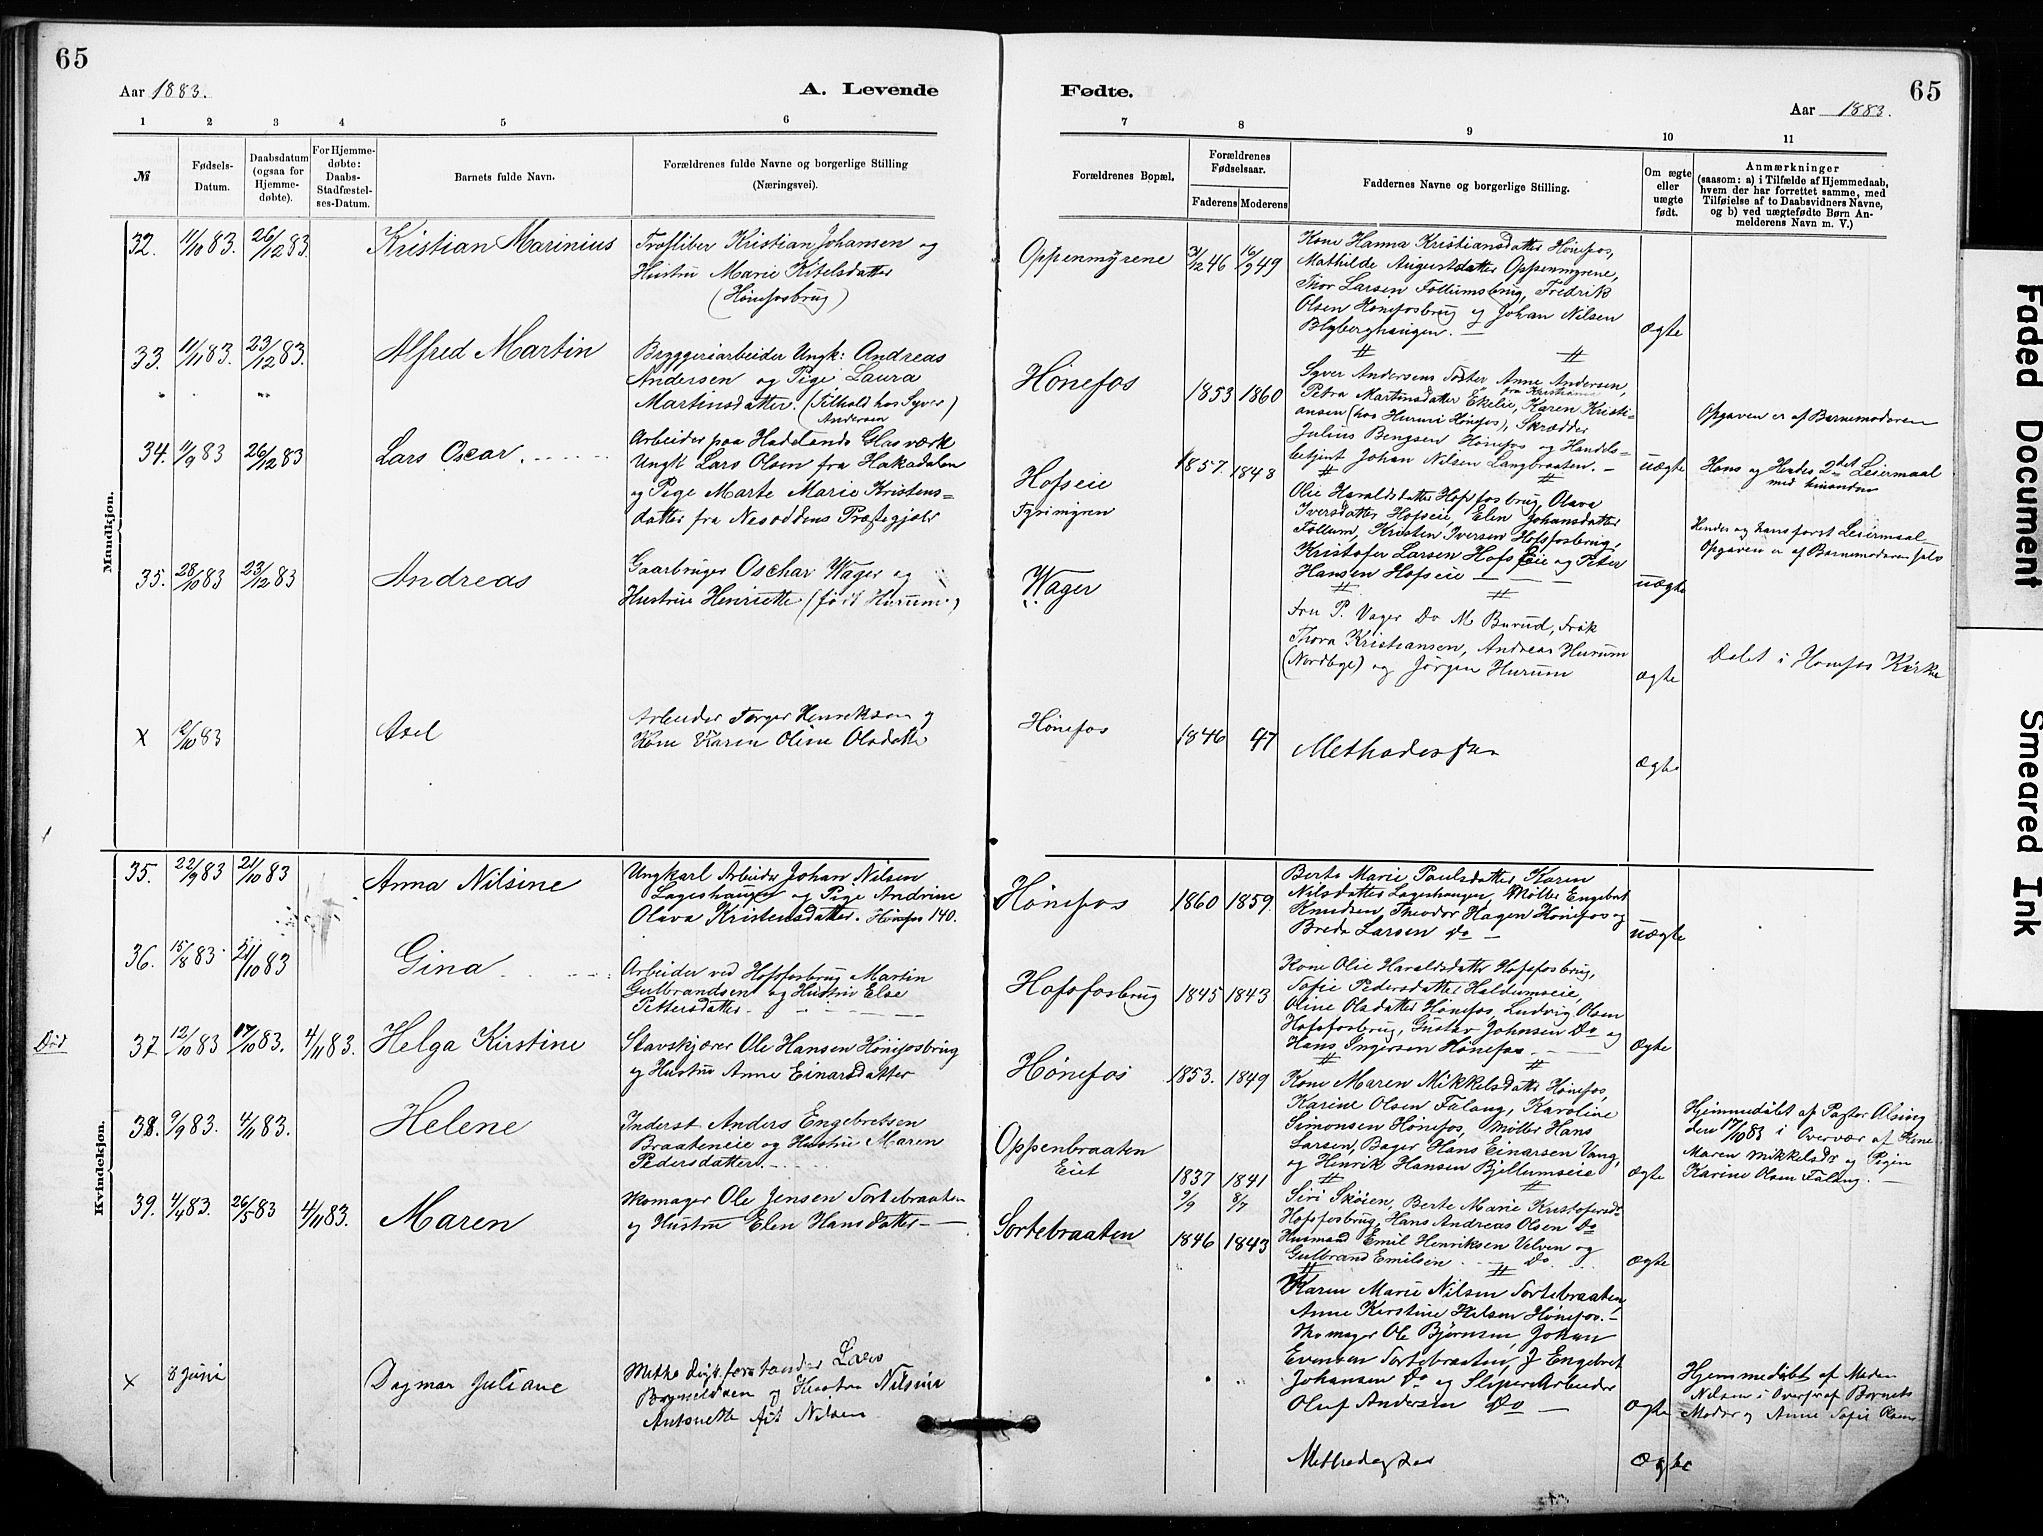 65
Aar 1883.
A. Levende
1 2 3 4 5 6
№
Fødsels-Datum.
Daabsdatum (ogsaa for Hjemmedøbte).
For Hjemmedøbte: Daabs-Stadfæstelses-Datum.
Barnets fulde Navn.
Forældrenes fulde Navne og borgerlige Stilling (Næringsvei).
Mandkjøn.
32. 11/10 83. 26/12 83 Kristian Marinius
Kristian Johansen og
Hustru Marie Kitelsdatter
(Hønefosbrug)
33. 11/11 83. 23/12 83. Alfred Martin
Bryggeriarbeider Ungk: Andreas
Andersen og Pige Laura
Martinsdatter. (Tilhold hos Syver
Andersen)
34. 11/9 83 26/12 83 Lars Oscar
Arbeider paa Hadelands Glasværk
Ungk Lars Olsen fra Hakadalen
og Pige Marte Marie Kristens=
datter fra Nesoddens Præstegjeld
35. 28/10 83 23/12 83 Andreas
Gaarbruger Oschar Wager og
Hustrue Henriette (født Hurum)
x 12/10 83 Axel
Arbeider Torger Henriksen og
Kone Karen Oline Olsdatter
Kvindekjøn.
35. 22/9 83 21/10 83 Anna Nilsine
Ungkarl Arbeider Johan Nilsen
Lageshaugen og Pige Andrine
Olava Kristensdatter. Hønefos 140.
36. 15/8 83 21/10 83 Gina
Arbeider ved Hofsfosbrug Martin
Gulbrandsen og Hustru Else
Pettersdatter
Død
37. 12/10 83 17/10 83. 4/11 83. Helga Kirstine
Stavskjærer Ole Hansen Hønefosbrug
og Hustru Anne Einarsdatter
38. 9/9 83. 4/11 83. Helene
Inderst Anders Engebretsen
Braateneie og Hustru Maren
Pedersdatter
39. 4/4 83. 26/5 83 4/11 83. Maren
Skomager Ole Jensen Sortebraaten
og Hustru Elen Hansdatter
x 8 Juni Dagmar Juliane
Lars
og Hustru Nilsine
Antonette født Nilsen
Fødte.
65
Aar 1883.
7 8 9 10 11
Forældrenes Bopæl.
Forældrenes Fødselsaar.
Faderens Moderens
Faddernes Navne og borgerlige Stilling.
Om ægte eller uægte født.
Anmærkninger
(saasom: a) i Tilfælde af Hjemmedaab,
hvem der har forrettet samme, med
Tilføielse af to Daabsvidners Navne,
og b) ved uægtefødte Børn Anmelderens Navn m. V.)
Oppenmyrene 31/12 46 16/9 49
Kone Hanna Kristiansdatter Hønefos,
Mathilde Augustdatter Oppenmyrene,
Thor Larsen Follumsbrug, Fredrik
Olsen Hønefosbrug og Johan Nilsen
Blyberghaugen.
Ægte
Hønefos 1853 1860
Syver Andersens Søster Anne Andersen,
fra Kristiania
Petra Martinsdatter Ekelie, Karen Kristi-
ansen (hos Hurum Hønefos), Skrædder
Julius Bengsen Hønefos og Handels-
betjent Johan Nilsen Langbraaten.
uægte
Opgaven er af Barnemoderen
Hans og Hendes 2det Leiermaal
med hinanden
Hofseie
Fyrimyren
1857. 1848
Olie Haraldsdatter Hofsfosbrug, Olava
Iversdatter Hofseie, Elen Johansdatter
Follum, Kristen Iversen Hofsfosbrug,
Kristofer Larsen Hofseie og Peter
Hansen Hofseie
uægte
Hendes og hans først Leiermaal
Opgaven er af Barnemoderen selv
Wager
Fru P. Vager Do M Burud, Frøk
Thora Kristiansen, Andreas Hurum
(Nordbye) og Jørgen Hurum
ægte
Døbt i Hønefos Kirke
Hønefos 1846 47
Ægte
Hønefos 1860 1859.
Berte Marie Paulsdatter, Karen
Nilsdatter Lageshaugen, Møller Engebret
Knudsen, Theodor Hagen Hønefos og
Breda Larsen Do
uægte
Hofsfosbrug 1845 1843
Kone Olie Haraldsdatter Hofsfosbrug,
Sofie Pedersdatter Haldumseie,
Oline Olsdatter Hønefos, Ludvig Olsen
Hofsfosbrug, Gustav Johnsen Do og
Hans Ingersen Hønefos
Ægte
Hønefos 1853. 1849
Kone Maren Mikkelsdatter Hønefos,
Karine Olsen Falang, Karoline
Simonsen Hønefos, Møller Hans
Larsen, Bager Hans Einarsen Vang,
og Henrik Hansen Bjellumseie
Ægte
Hjemmedøbt af Pastor Alsing
den 17/10 83 i Overvær af Kone
Maren Mikkelsdr og Pigen
Karine Olsen Falang.
Oppenbraaten
Eiet
1837 1841
9/9 8/7
Siri Skøien, Berte Marie Kristofersdr
Hofsfosbrug, Hans Andreas Olsen Do
Husmand Emil Henriksen Velven og
Gulbrand Emilsen Do
Ægte
Sortebraaten 1846 1843
Karen Marie Nilsen Sortebraaten,
Anne Kirstine Nilsen Hønefos.
Skomager Ole Bjørnsen, Johan
Evensen Sortebraaten, J Engebret
Johansen Do og Sliperarbeider
Oluf Andersen Do
Ægte
Hjemmedøbt af
Nilsen i Overvær af Barnets
Moder og Anne Sofie Olsen
Ægte
Faded Document
Smeared Ink